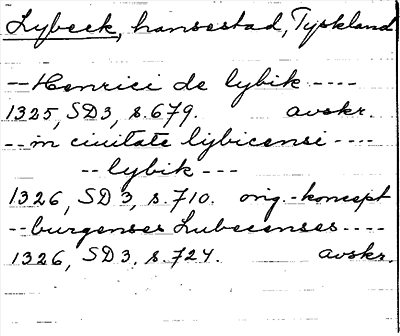 Lybeck, hansestad, Tyskland
-- Henrici de lybik ----
1325, SD3, s. 679. avskr.
-- in ciuitate lybicensi ----
-- lybik ---
1326, SD3, s. 710. orig.-koncept
-- burgenses Lubecenses ----
1326, SD3, s. 724. avskr.